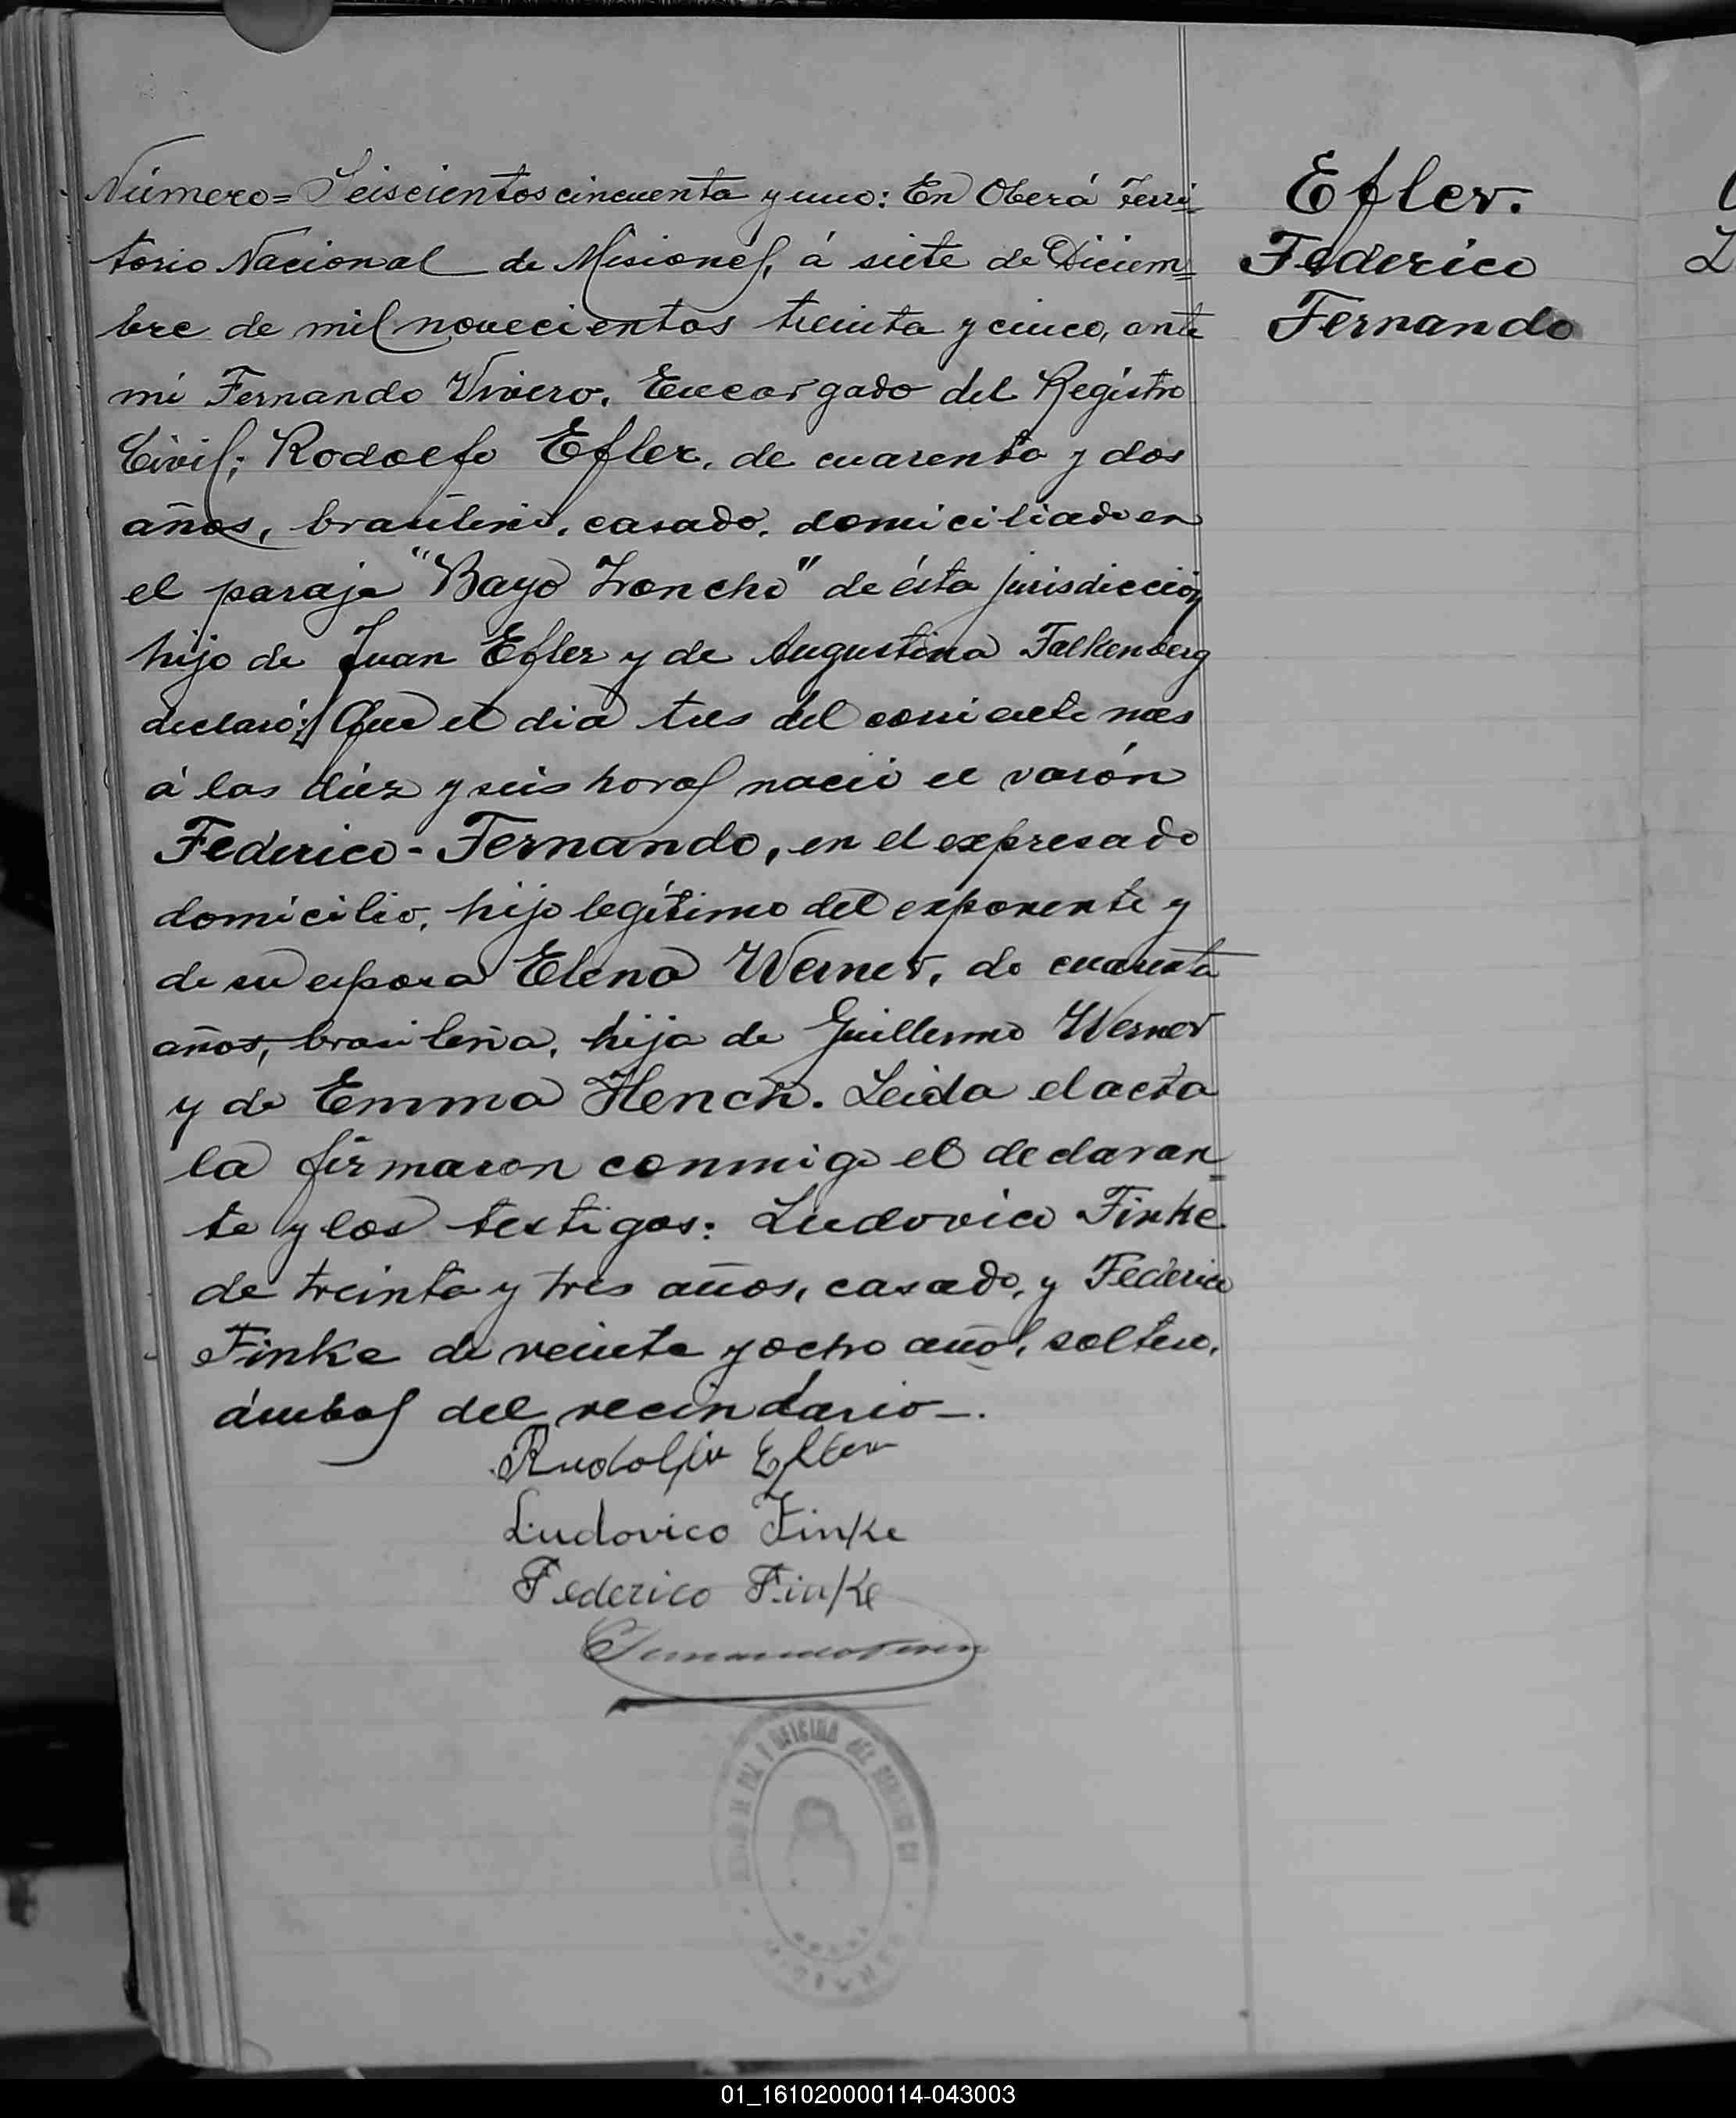 Número= Seiscientos cincuenta y uno: En Oberá Terri=
torio Nacional de Misiones, á siete de Diciem=
bre de mil novecientos treinta y cinco, ante
mi Fernando Vivero, Encargado del Registro
Civil; Rodolfo Efler, de cuarenta y dos
años, brasilero, casado, domiciliado en
el paraje "Bayo Troncho" de ésta jurisdicción
hijo de Juan Efler y de Augustina Falkenberg
declaró: Que el dia tres del corriente mes
á las diéz y seis horas nació el varón
Federico-Fernando, en el expresado
domicilio, hijo legítimo del exponente y
de su esposa Elena Werner, de cuarenta
años, brasileña, hija de Guillermo Werner
y de Emma Hench. Leida el acta
la firmaron conmigo el declaran=
te y los testigos: Ludovico Finke
de treinta y tres años, casado, y Federico
Finke de veinte y ocho años, soltero,
ámbos del vecindario—.
Rudolfo Efler
Ludovico Finke
Federico Finke
Efler.
Federico
Fernando
OFICINA DEL REGISTRO
MISIONES
01_161020000114-043003